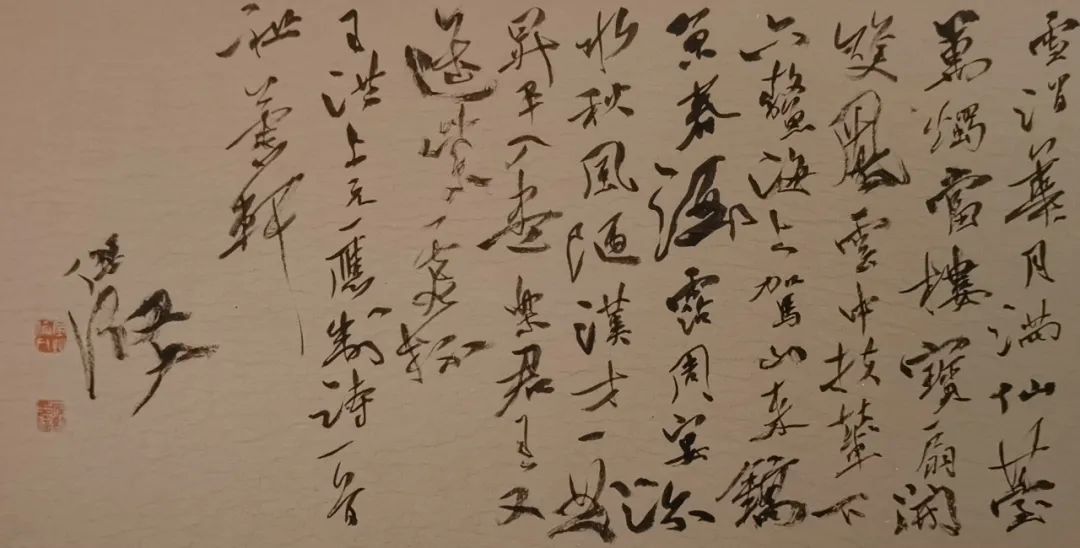 雪消華月滿仙臺
萬燭當樓寶扇開
雙鳳雲中扶輦下
六鰲海上駕山來鎬
京春酒霑周宴汾
水秋風陋漢才一曲
昇平人盡樂君王又
進紫霞杯
王洪上元應制詩一首
軒